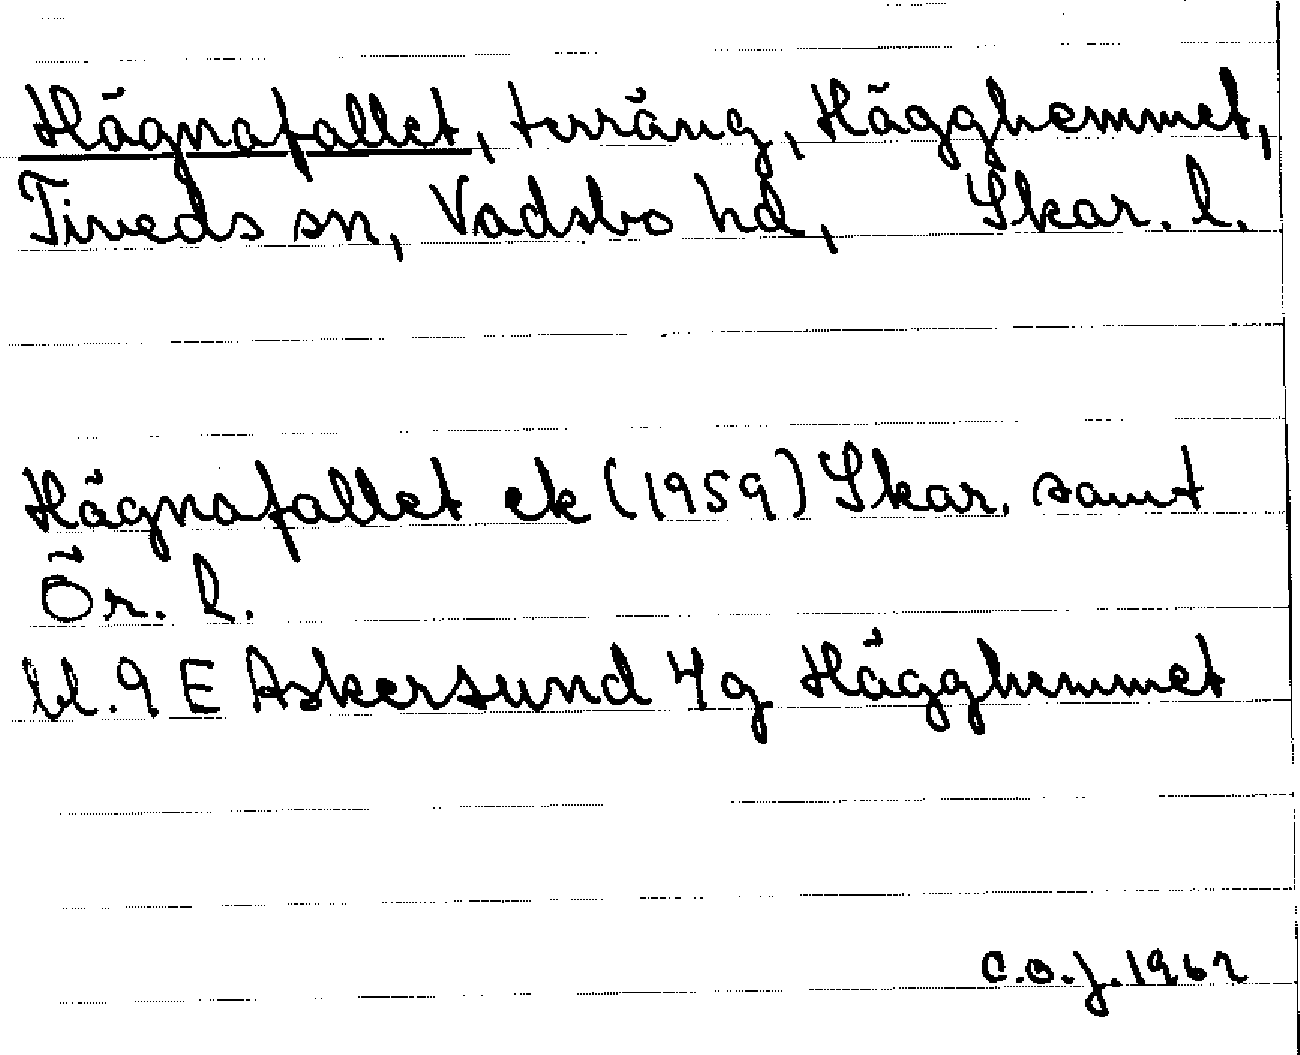 Hägnafallet, terräng, Hägghemmet,
Tiveds sn, Vadsbo hd, Skar. l.
Hägnafallet ek (1959) Skar. samt
Ör. l.
bl. 9 E Askersund 4g Hägghemmet
C.O.J. 1962